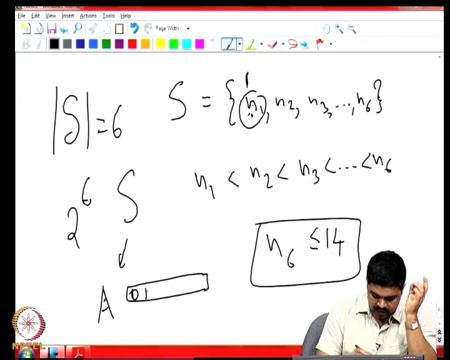 File Edit View Insert Actions Tools Help
Page Width
|S| = 6
S = {n1, n2, n3, ..., n6}
1
n1 < n2 < n3 < ... < n6
2^6 S
n6 ≤ 14
A 01